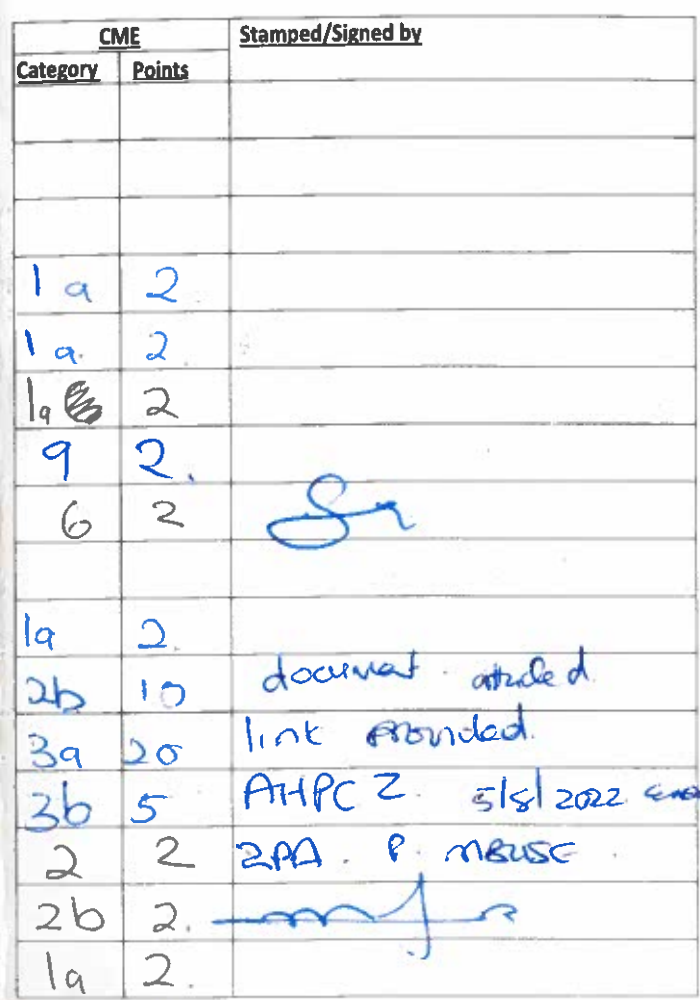 CME Stamped/Signed by
Category Points
1a 2
1a. 2
1a 2
9 2.
6 2
1a 2.
2b 10 document attached
3a 20 link provided.
3b 5 AHPCZ 5/8/2022
2 2 ZPA. P. MBUSE
2b 2.
1a 2.